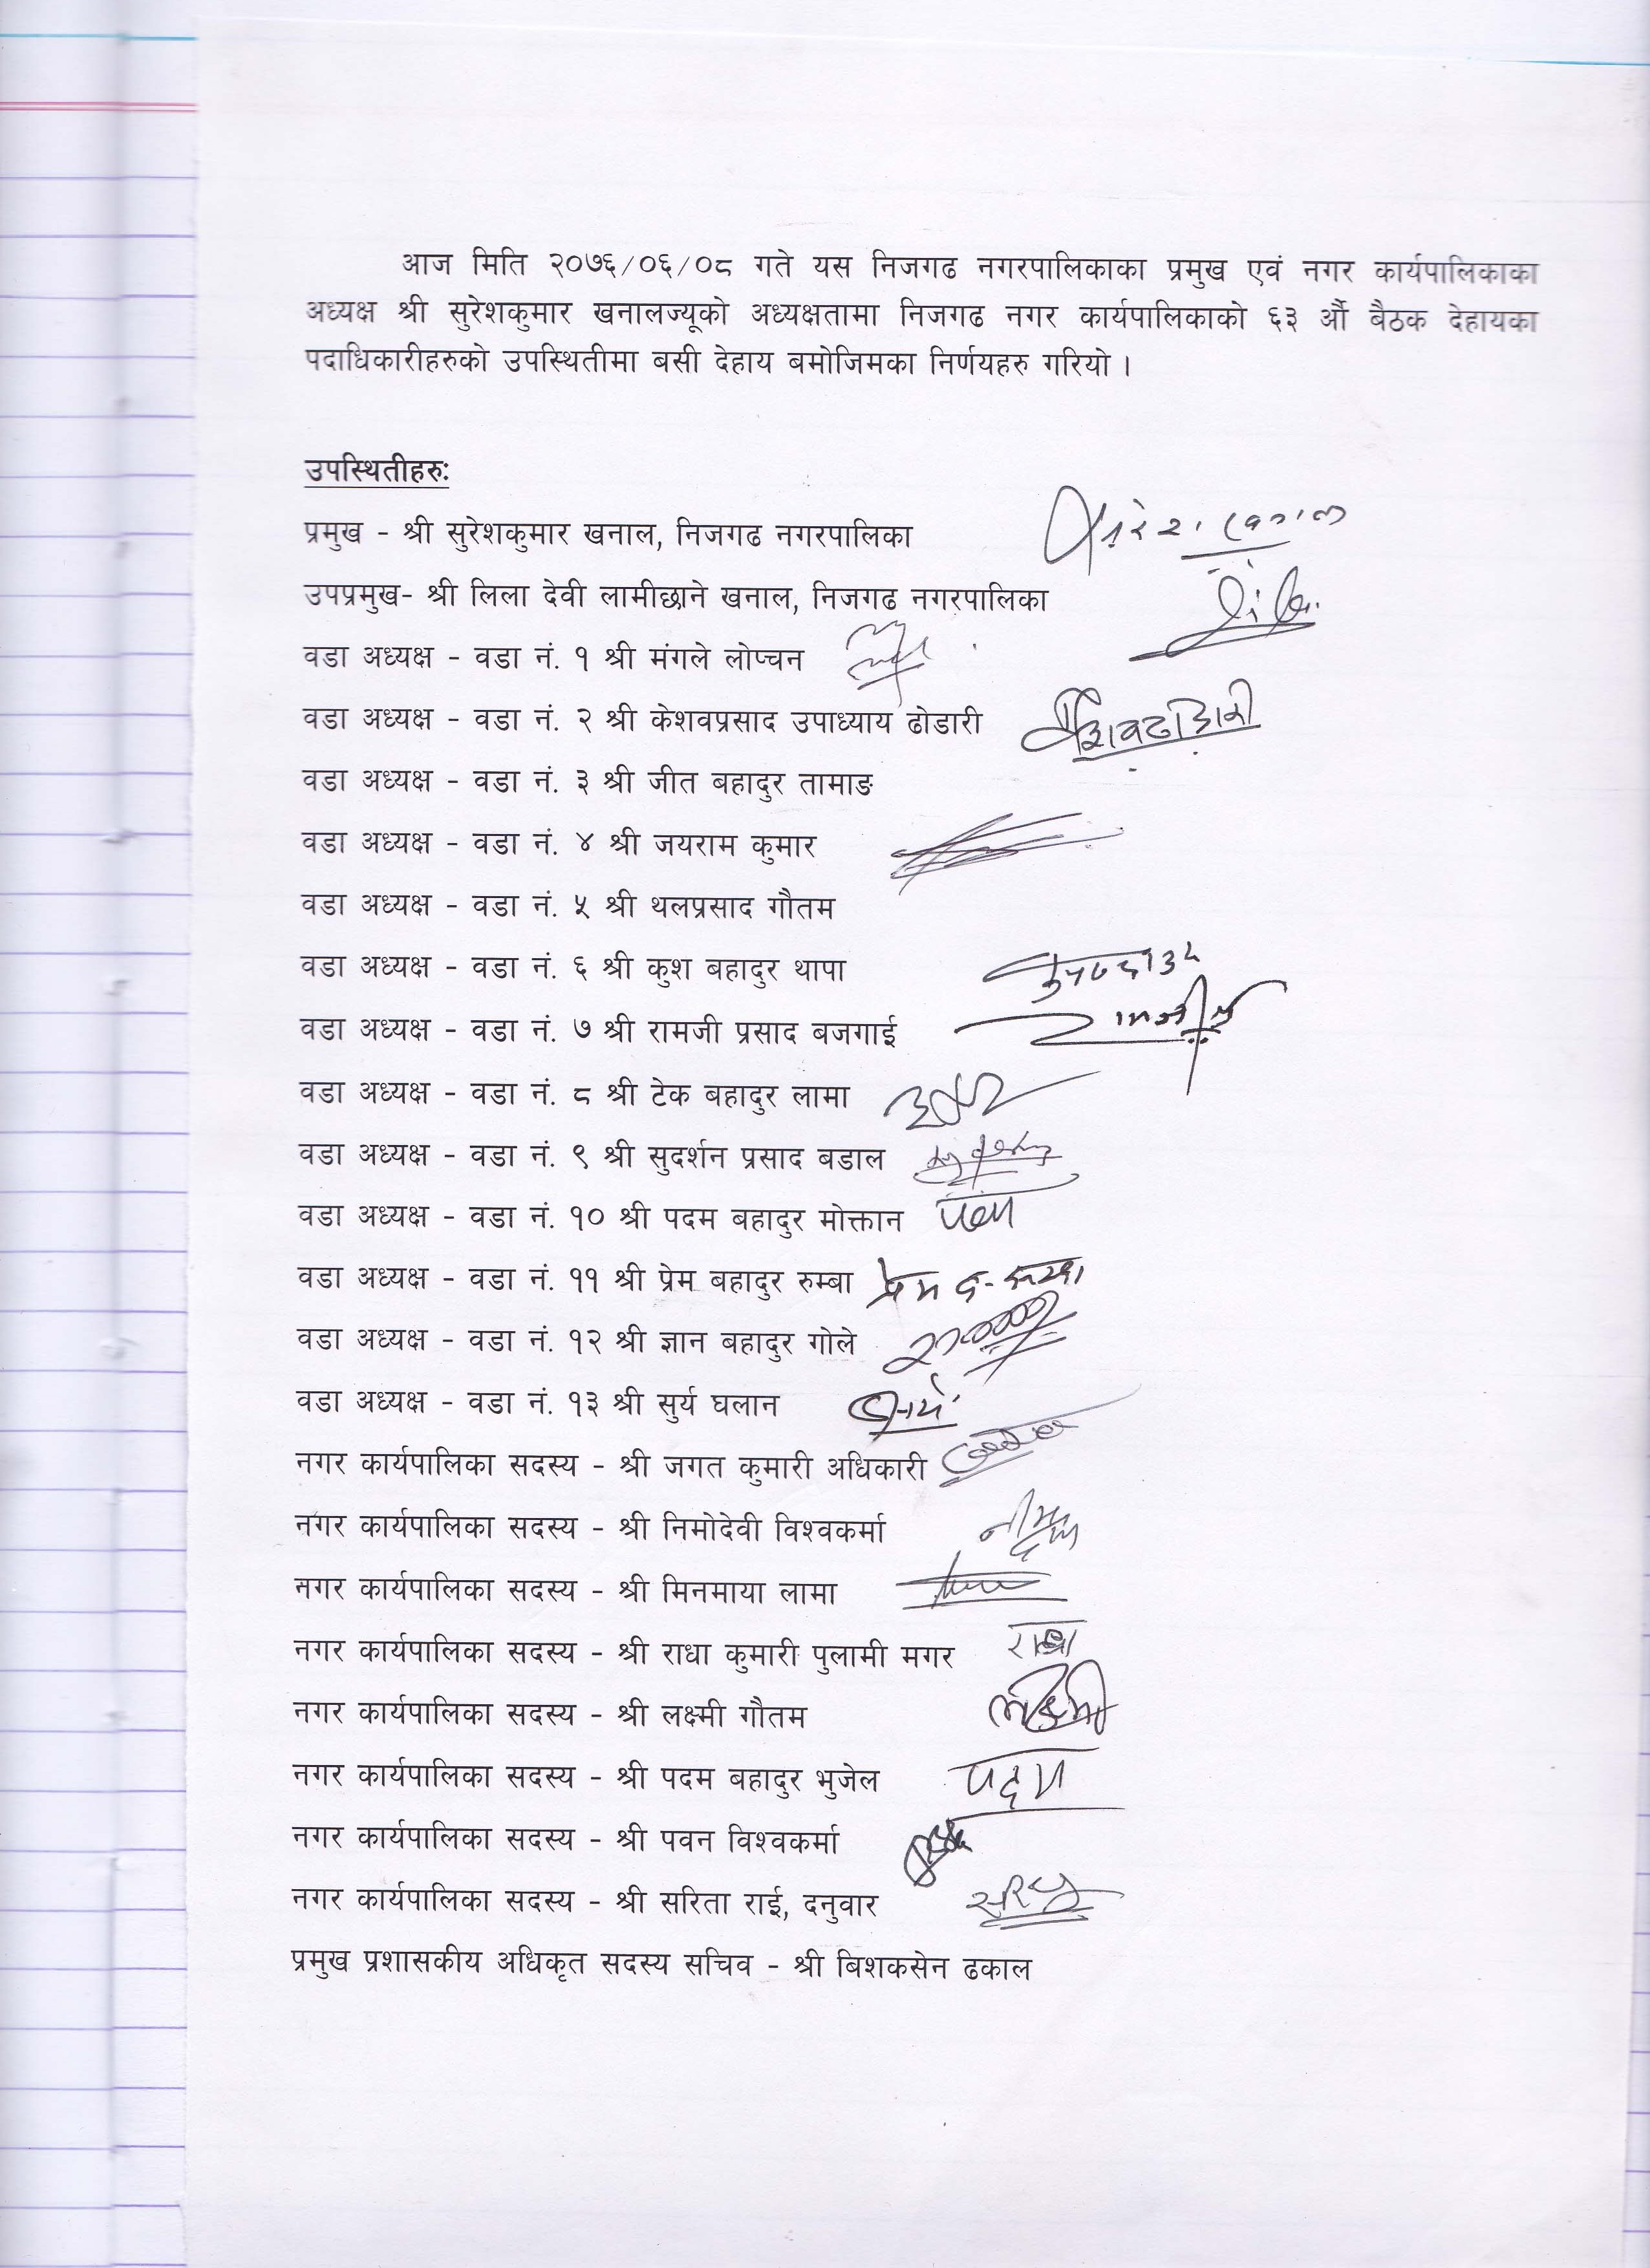 आज मिति २०७६/०६/०८ गते यस निजगढ नगरपालिकाका प्रमुख एवं नगर कार्यपालिकाका
अध्यक्ष श्री सुरेशकुमार खनालज्यूको अध्यक्षतामा निजगढ नगर कार्यपालिकाको ६३ औं बैठक देहायका
पदाधिकारीहरुको उपस्थितीमा बसी देहाय बमोजिमका निर्णयहरु गरियो ।
उपस्थितीहरु:
प्रमुख - श्री सुरेशकुमार खनाल, निजगढ नगरपालिका
उपप्रमुख- श्री लिला देवी लामीछाने खनाल, निजगढ नगरपालिका
वडा अध्यक्ष - वडा नं. १ श्री मंगले लोप्चन
वडा अध्यक्ष - वडा नं. २ श्री केशवप्रसाद उपाध्याय ढोडारी
वडा अध्यक्ष - वडा नं. ३ श्री जीत बहादुर तामाङ
वडा अध्यक्ष - वडा नं. ४ श्री जयराम कुमार
वडा अध्यक्ष - वडा नं. ५ श्री थलप्रसाद गौतम
वडा अध्यक्ष - वडा नं. ६ श्री कुश बहादुर थापा
वडा अध्यक्ष - वडा नं. ७ श्री रामजी प्रसाद बजगाई
वडा अध्यक्ष - वडा नं. ८ श्री टेक बहादुर लामा
वडा अध्यक्ष - वडा नं. ९ श्री सुदर्शन प्रसाद बडाल
वडा अध्यक्ष - वडा नं. १० श्री पदम बहादुर मोक्तान
वडा अध्यक्ष - वडा नं. ११ श्री प्रेम बहादुर रुम्बा प्रेम
वडा अध्यक्ष - वडा नं. १२ श्री ज्ञान बहादुर गोले
वडा अध्यक्ष - वडा नं. १३ श्री सुर्य घलान
नगर कार्यपालिका सदस्य - श्री जगत कुमारी अधिकारी
नगर कार्यपालिका सदस्य - श्री निमोदेवी विश्वकर्मा
नगर कार्यपालिका सदस्य - श्री मिनमाया लामा
नगर कार्यपालिका सदस्य - श्री राधा कुमारी पुलामी मगर राधा
नगर कार्यपालिका सदस्य - श्री लक्ष्मी गौतम लक्ष्मी
नगर कार्यपालिका सदस्य - श्री पदम बहादुर भुजेल पदम
नगर कार्यपालिका सदस्य - श्री पवन विश्वकर्मा
नगर कार्यपालिका सदस्य - श्री सरिता राई, दनुवार
प्रमुख प्रशासकीय अधिकृत सदस्य सचिव - श्री बिशकसेन ढकाल